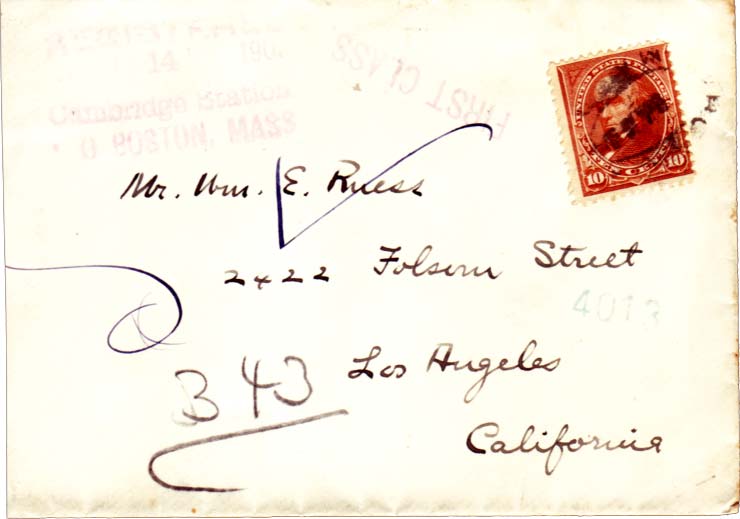 14 190
Cambridge Station
BOSTON, MASS
FIRST CLASS
UNITED STATES POSTAGE
10 TEN CENTS 10
Mr. Wm. E. Ruess
2422 Folsom Street
4013
B 43
Los Angeles
California